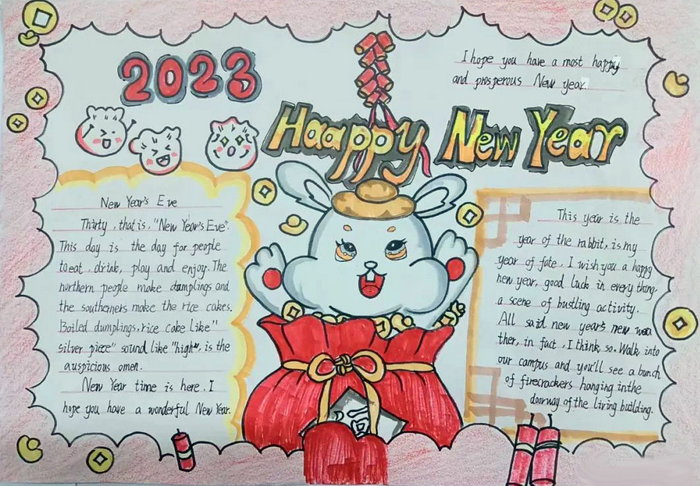 2023
I hope you have a most happy
and prosperous New year.
Haappy New Year
New Year's Eve
Thirty, that is, "New Year's Eve".
This day is the day for people
to eat, drink, play and enjoy. The
northern people make dumplings and
the southerners make the rice cakes.
Boiled dumplings, rice cake like"
silver piece" sound like "high", is the
auspicious omen.
New Year time is here. I
hope you have a wonderful New Year.
This year is the
year of the rabbit, is my
year of fate. I wish you a happy
new year, good lack in every thing
a scene of bustling activity.
All said new year's new wea
ther, in fact, I think so. Walk into
our campus and you'll see a bunch
of firecrackers hanging in the
doorway of the living building.